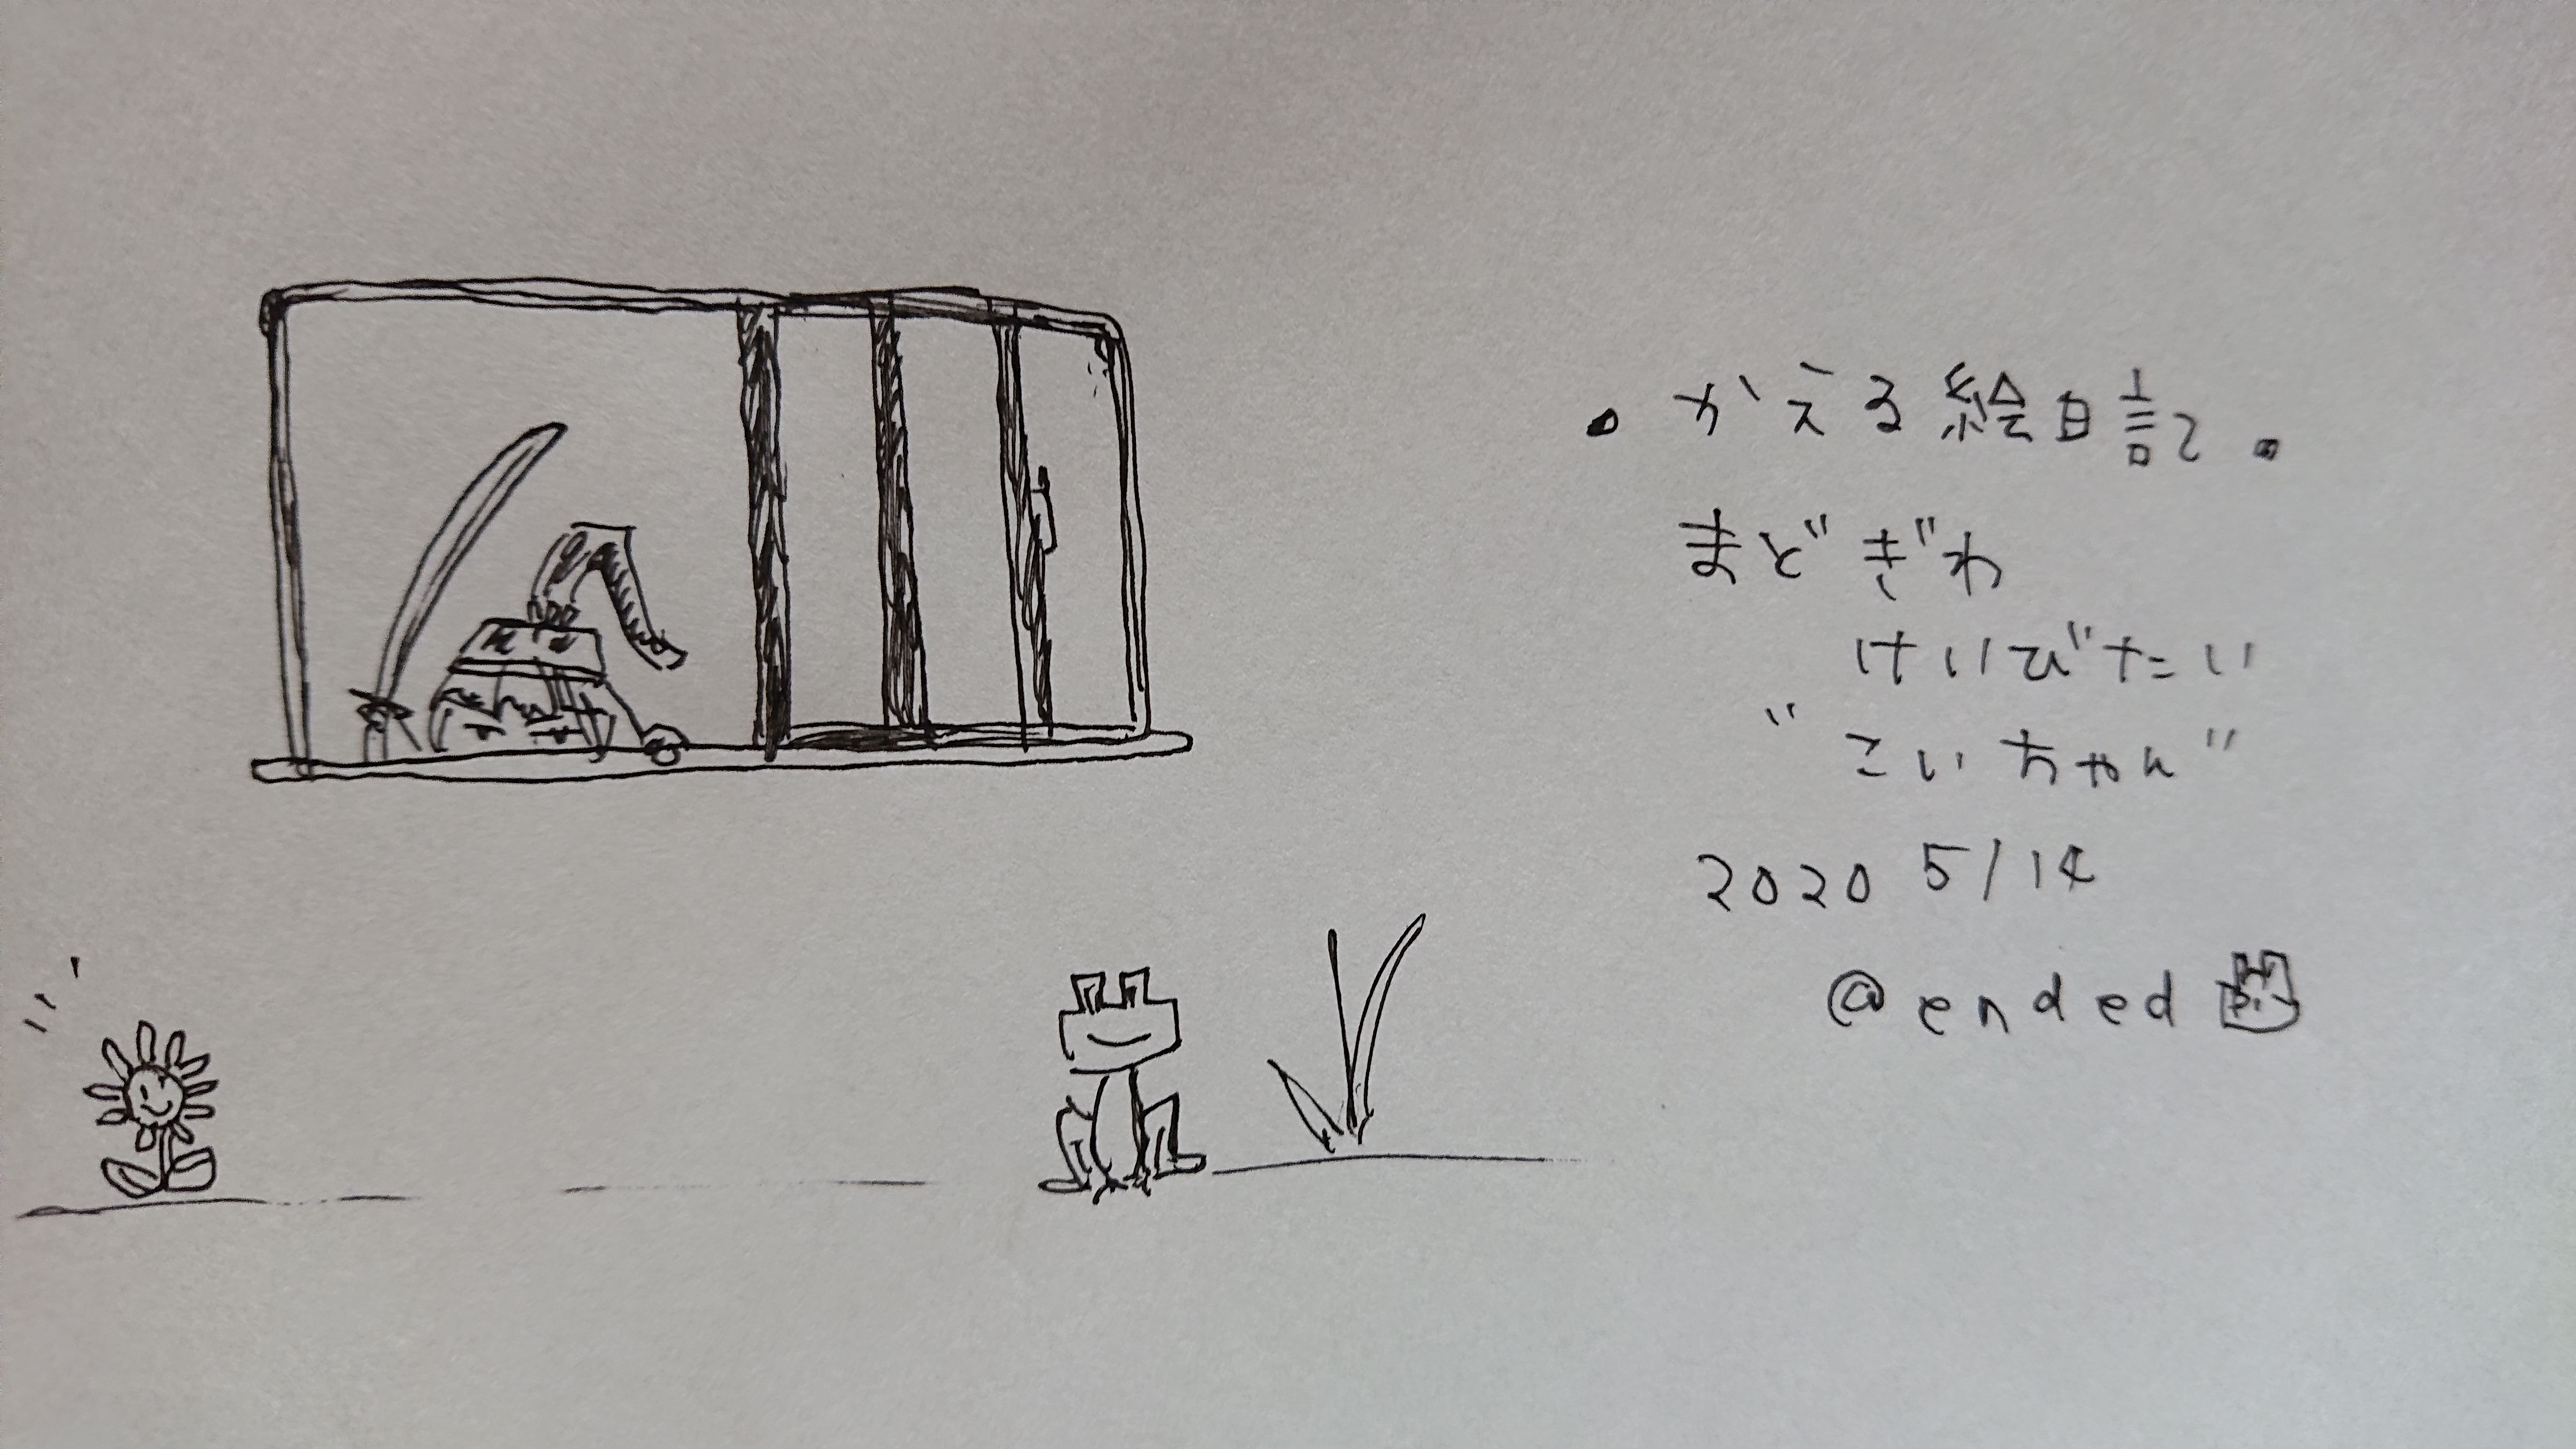 ・かえる絵日記・
まどぎわ
けいびたい
"こいちゃん"
2020 5/14
@ended